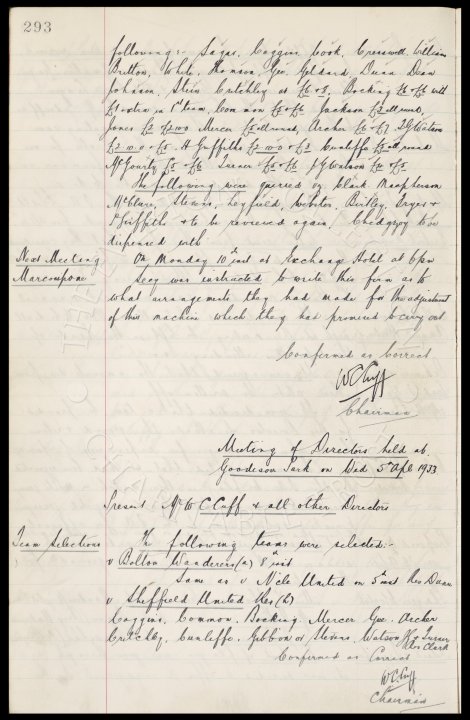 293
following:- Sagar, Coggins, Cook, Cresswell, William
Britton, White, Thomson, Gee, Geldard, Dunn Dean
Johnson, Stein Critchley at £6 & 8, Bocking £6 & £4 with
£1 extra in 1st team, Common £5 & £6 Jackson £3 all round,
Jones £2 & £2.10.0 Mercer £5 all round, Archer £6 & £7 T G Watson
£2.10.0 & £5. H Griffiths £2.10.0 & £3 Cunliffe £5 all round
McGourty £5 & £6 Turner £5 & £6 J G Watson £4 & £5
The following were queried viz Clark Macpherson
McClure, Stevens, Leyfield, Webster, Birtley, Sayer &
P Griffiths & to be reviewed again. Chedgzoy to be
dispensed with
Next Meeting
On Monday 10th inst at Exchange Hotel at 6pm
Marconfone
Secy was instructed to write this firm as to
what arrangements they had made for the adjustment
of this machine which they had promised to carry out
Confirmed as Correct
W C Cuff
Chairman
Meeting of Directors held at
Goodison Park on Wed 5th Apl 1933
Present Mr W C Cuff & all other Directors
Team Selections
The following teams were selected:-
v Bolton Wanderers (a) 8th inst
Same as v N'cle United on 5th inst Res Dunn
v Sheffield United Res (h)
Coggins, Common, Bocking, Mercer Gee, Archer
Critchley, Cunliffe, Gibbon or Stevens, Watson JG & Turner
Res Clark
Confirmed as Correct
W C Cuff
Chairman